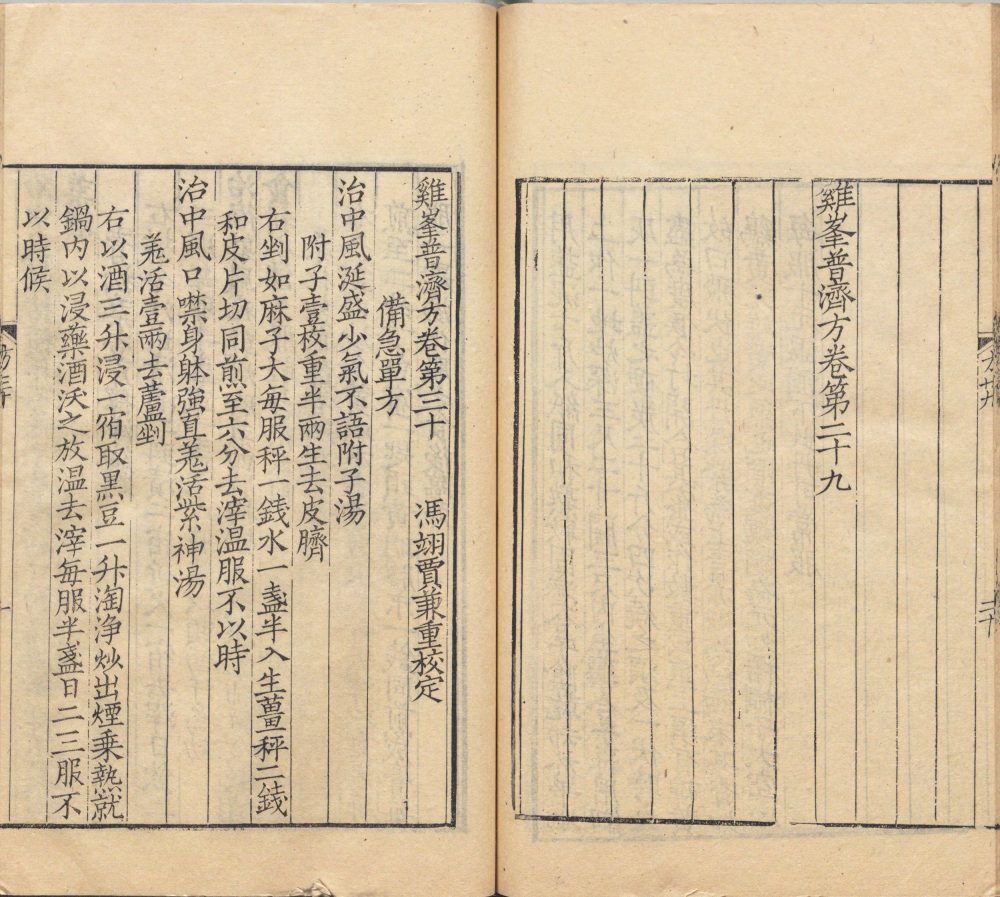 雞峯普濟方卷第二十九
雞峯普濟方卷第三十　馮翊賈兼重校定
備急單方
治中風涎盛少氣不語附子湯
附子壹枚重半兩生去皮臍
右剉如麻子大每服秤一錢水一盞半入生薑秤二錢
和皮片切同煎至六分去滓温服不以時
治中風口噤身躰強直羗活紫神湯
羗活壹兩去蘆剉
右以酒三升浸一宿取黑豆一升淘净炒出煙乗熱就
鍋内以浸藥酒沃之放温去滓每服半盞日二三服不
以時候